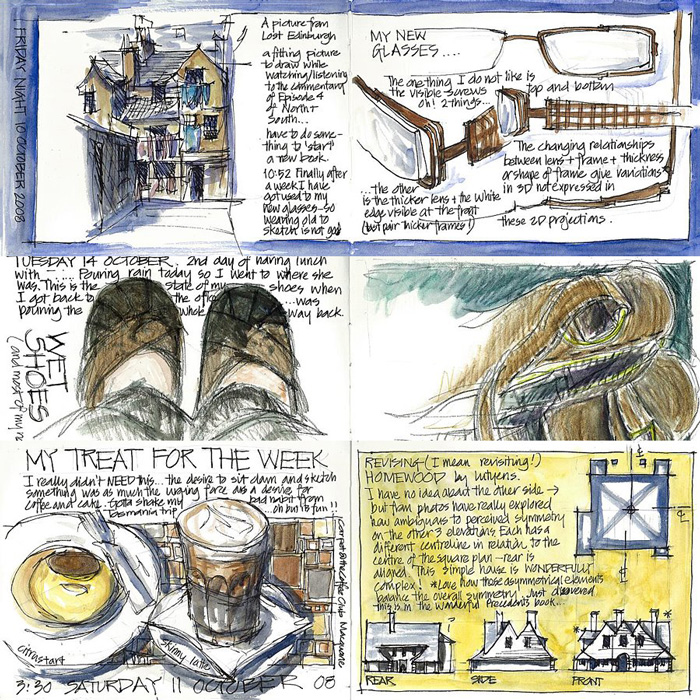 FRIDAY NIGHT 10 OCTOBER 2008
A picture from
Lost Edinburgh
a fitting picture
to draw while
watching/listening
to the commentary
of Episode 4
of North +
South...
have to do some-
thing to 'start'
a new book.
10:52 Finally after
a week I have
got used to my
new glasses - so
wearing old to
sketch is not good
MY NEW
GLASSES....
The one thing I do not like is
the visible screws top and bottom
oh! 2 things...
The changing relationships
between lens + frame + thickness
or shape of frame give variations
in 3D not expressed in
these 2D projections.
...the other
is the thicker lens + the white
edge visible at the front
(but pair thicker frames!)
TUESDAY 14 OCTOBER. 2nd day of having lunch
with - .... Pouring rain today so I went to where she
was. This is the state of my shoes when
I got back to the office ...was
pouring the whole way back.
WET
SHOES
(and most of my
MY TREAT FOR THE WEEK
I really didn't NEED this... the desire to sit down and sketch
something was as much the urging force as a desire for
coffee and cake. Gotta shake my bad habit from
Tasmania trip oh but is fun!!
carpet @ the Coffee Club Macquarie
citrus tart
skinny latte
3:30 SATURDAY 11 OCTOBER 08
REVISING (I mean revisiting!)
HOMEWOOD by Lutyens.
I have no idea about the other side →
but from photos have really explored
how ambiguous to perceived symmetry
on the other 3 elevations. Each has a
different centreline in relation to the
centre of the square plan - rear is
aligned. This simple house is WONDERFULLY
complex. *Love how those asymmetrical elements
balance the overall symmetry. Just discovered
this in the wonderful Precedents book...
REAR
SIDE
FRONT